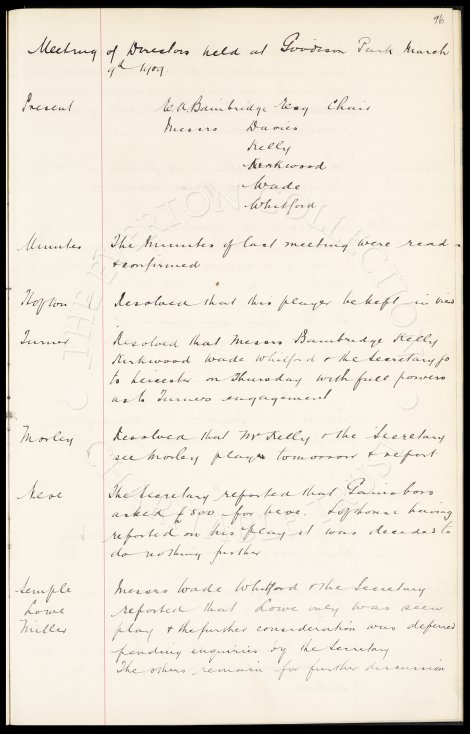 96
Meeting of Directors held at Goodison Park March
9th 1909
Present E A Bainbridge Esq Chair
Messrs Davies
Kelly
Kirkwood
Wade
Whitford
Minutes The Minutes of last meeting were read
& confirmed
Hopton Resolved that this player be kept in view
Turner Resolved that Messrs Bainbridge Kelly
Kirkwood Wade Whitford & the Secretary go
to Leicester on Thursday with full powers
as to Turners engagement
Morley Resolved that Mr Kelly & the Secretary
see Morley play tomorrow & report
Neve The Secretary reported that Gainsboro
asked £500 for Neve. Lofthouse having
reported on his play it was decided to
do nothing further
Semple Messrs Wade Whitford & the Secretary
Lowe reported that Lowe only was seen
Miller play & the further consideration was deferred
pending enquiries by the Secretary
The others remain for further discussion
THE EVERTON COLLECTION